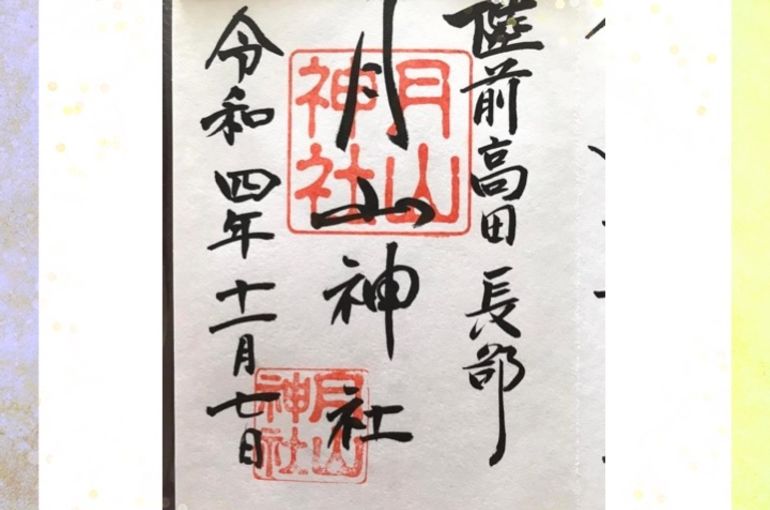 陸前高田 長部
月山神社
令和四年十一月七日
月山
神社
月山
神社